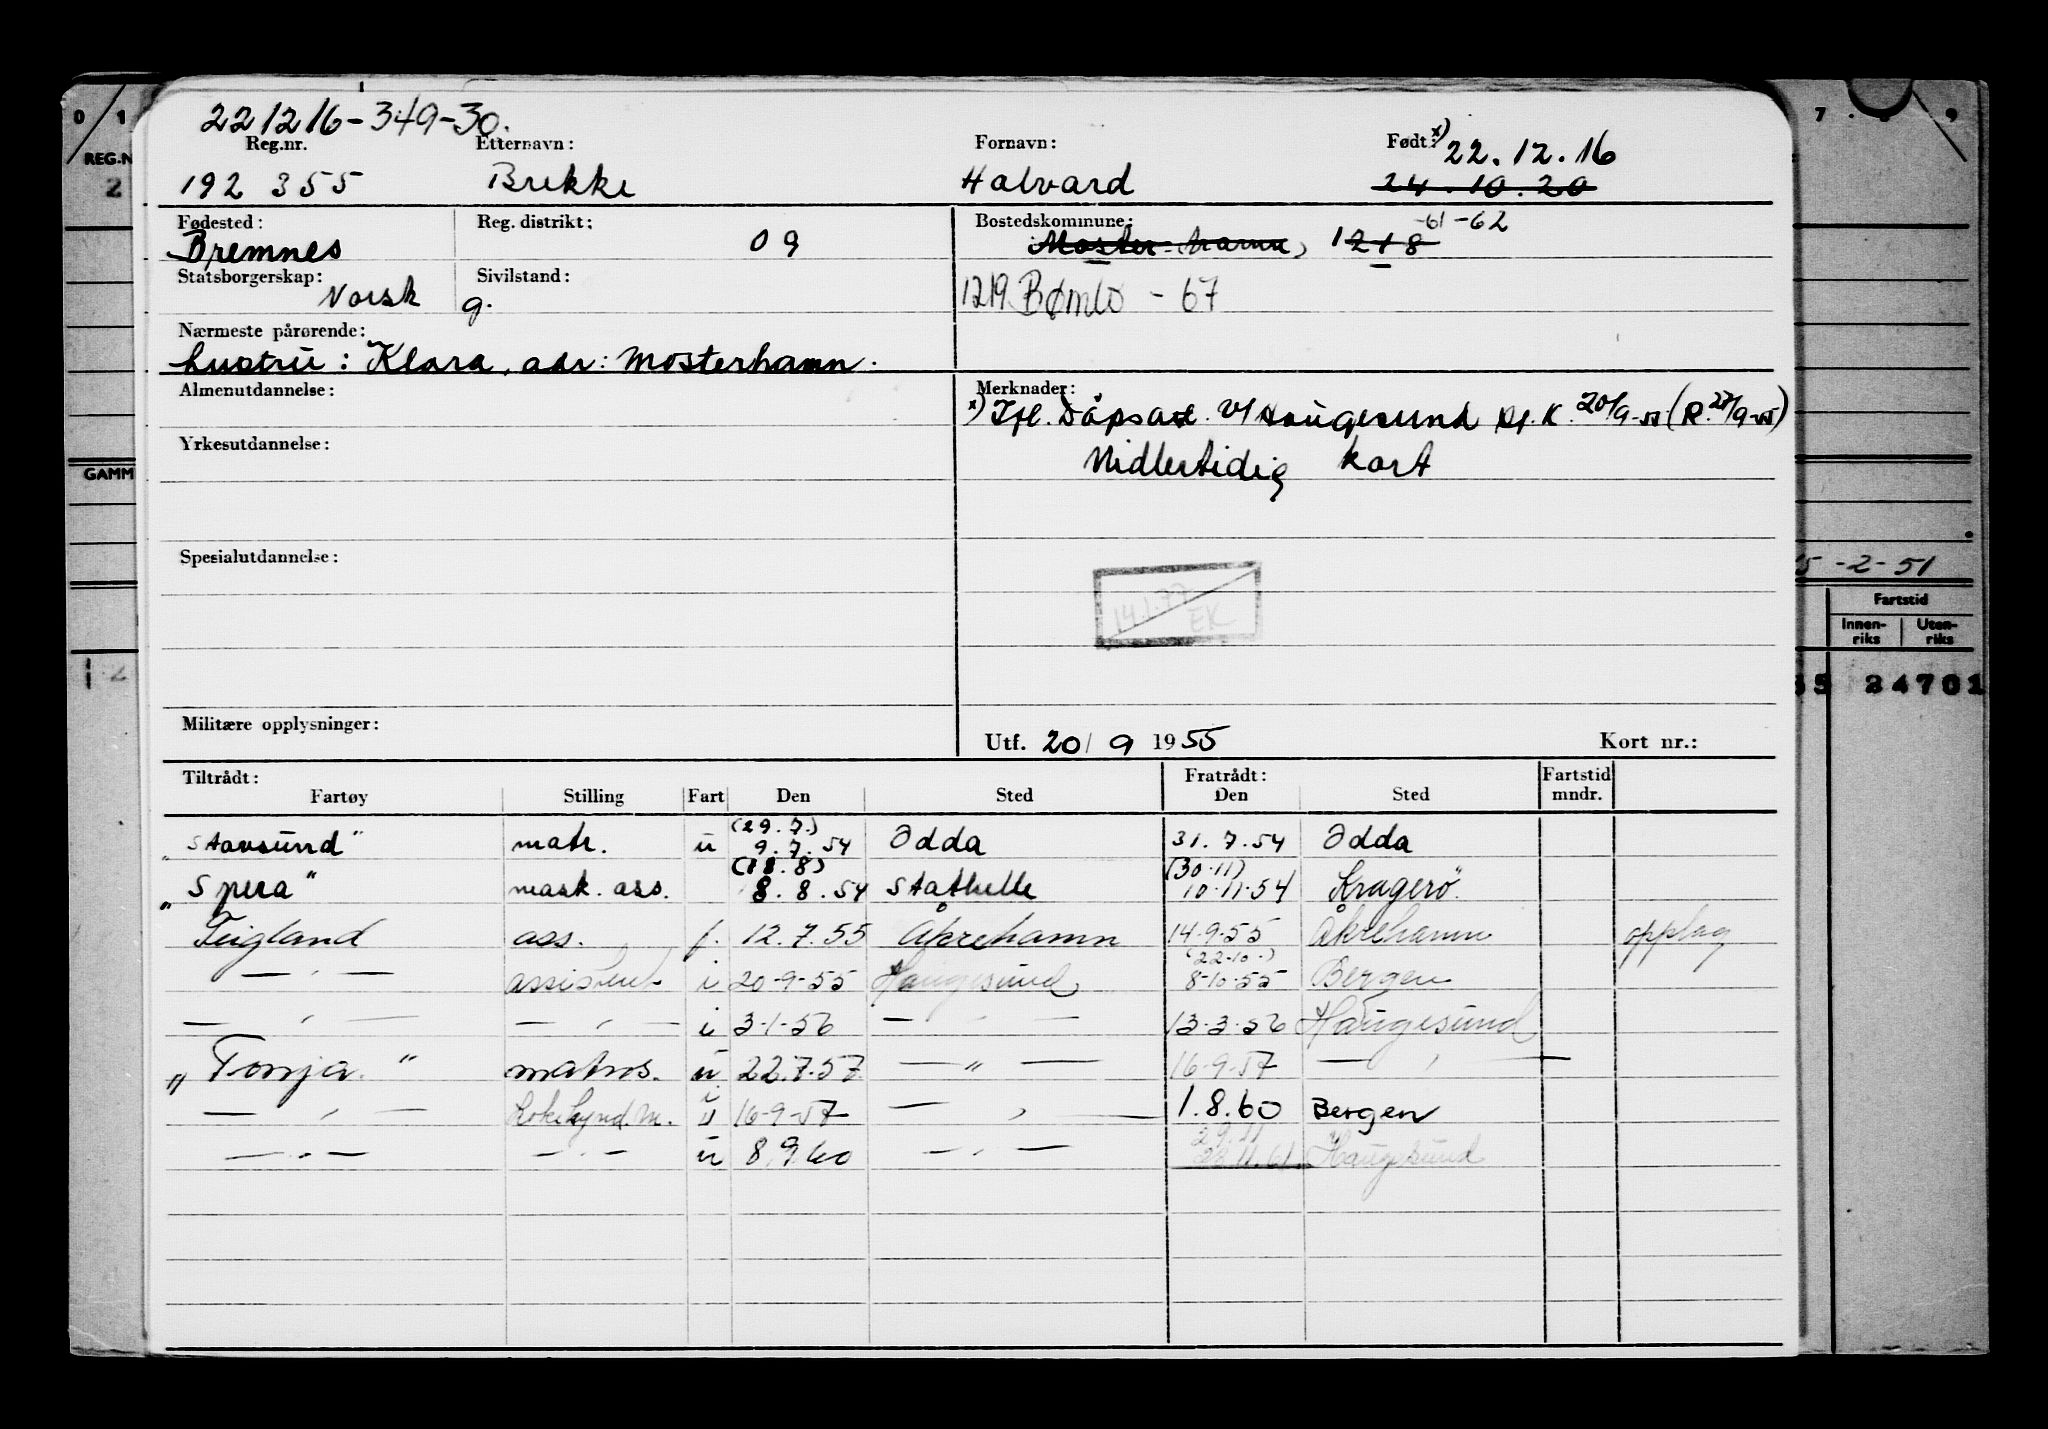 221216-349-30.
Reg.nr. Etternavn: Fornavn: Født: x) 22.12.16
192 355 Brekke Halvard 24.10.20
Fødested: Reg. distrikt: Bostedskommune: -61-62
Bremnes 09 Moster-hamn, 1218
Statsborgerskap: Sivilstand:
Norsk g. 1219 Bømlo - 67
Nærmeste pårørende:
hustru: Klara, adr: Mosterhamn.
Almenutdannelse: Merknader:
x) Ifl. Dåpsatt. v/ Haugesund 20/9-55 (R. 27/9-55)
Yrkesutdannelse:
Midlertidig kort
Spesialutdannelse:
14.1.77
EK
Militære opplysninger:
Utf. 20/9 1955 Kort nr.:
Tiltrådt: Fratrådt: Fartstid
Fartøy Stilling Fart Den Sted Den Sted mndr.
(29.7.)
"Stavsund" matr. u 9.7.54 Odda 31.7.54 Odda
(18.8) (30.11)
"Spera" mask. ass. 8.8.54 Stathelle 10.11.54 Kragerö
Feigland ass. f. 12.7.55 Åkrehamn 14.9.55 Åkrehamn opplag
(22.10.)
— " — assistent i 20-9-55 Haugesund 8-10-55 Bergen
— " — — " — i 3-1-56 — " — 13-3-56 Haugesund
"Tonja" matros. u 22.7.57 — " — 16-9-57 — " —
— " — 16-9-57 — " — 1.8.60 Bergen
29.11
— " — — " — u 8.9.60 — " — 11.61 Haugesund
0 1
REG.N
2
GAMM
7 . 9
15-2-51
Fartstid
Innen-riks Uten-riks
35 24701